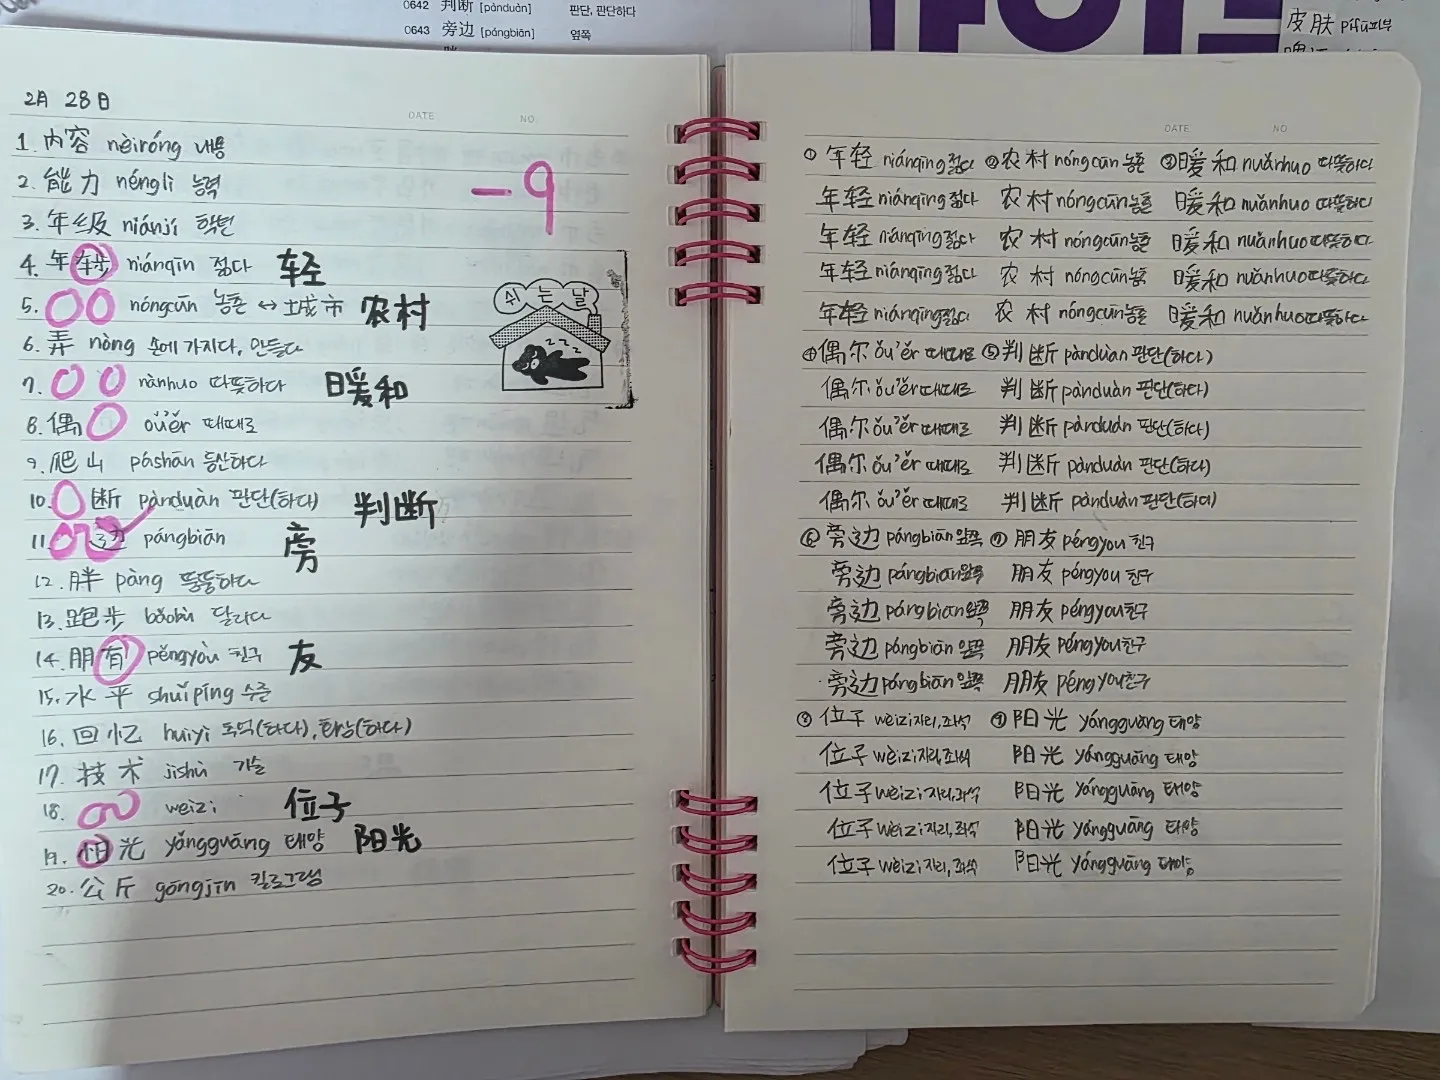 0642 判断 [pànduàn] 판단, 판단하다
0643 旁边 [pángbiān] 옆쪽
皮肤 pífū 피부
2月 28日
DATE NO.
1. 内容 nèiróng 내용
-9
2. 能力 nénglì 능력
3. 年级 niánjí 학년
4. 年 niánqīn 젊다 轻
5. nóngcūn 농촌 ↔ 土城市 农村
6. 弄 nòng 손에 가지다, 만들다
7. nànhuo 따뜻하다 暖和
8. 偶 ǒu'ěr 때때로
9. 爬山 páshān 등산하다
10. 断 pànduàn 판단(하다) 判断
11. 边 pángbiān 旁
12. 胖 pàng 뚱뚱하다
13. 跑步 bǎobù 달리다
14. 朋有 péngyòu 친구 友
15. 水平 shuǐpíng 수준
16. 回忆 huíyì 추억(하다), 회상(하다)
17. 技术 jìshù 기술
18. weizi 位子
19. 光 yángguāng 태양 阳光
20. 公斤 gōngjīn 킬로그램
쉬는날
zzz
DATE NO
① 年轻 niánqīng 젊다 ② 农村 nóngcūn 농촌 ③ 暖和 nuǎnhuo 따뜻하다
年轻 niánqīng 젊다 农村 nóngcūn 농촌 暖和 nuǎnhuo 따뜻하다
年轻 niánqīng 젊다 农村 nóngcūn 농촌 暖和 nuǎnhuo 따뜻하다
年轻 niánqīng 젊다 农村 nóngcūn 농촌 暖和 nuǎnhuo 따뜻하다
年轻 niánqīng 젊다 农村 nóngcūn 농촌 暖和 nuǎnhuo 따뜻하다
④ 偶尔 ǒu'ěr 때때로 ⑤ 判断 pànduàn 판단(하다)
偶尔 ǒu'ěr 때때로 判断 pànduàn 판단(하다)
偶尔 ǒu'ěr 때때로 判断 pànduàn 판단(하다)
偶尔 ǒu'ěr 때때로 判断 pànduàn 판단(하다)
偶尔 ǒu'ěr 때때로 判断 pànduàn 판단(하다)
⑥ 旁边 pángbiān 옆쪽 ⑦ 朋友 péngyou 친구
旁边 pángbiān 옆쪽 朋友 péngyou 친구
旁边 pángbiān 옆쪽 朋友 péngyou 친구
旁边 pángbiān 옆쪽 朋友 péngyou 친구
旁边 pángbiān 옆쪽 朋友 péngyou 친구
⑧ 位子 wèizi 자리, 좌석 ⑨ 阳光 yángguāng 태양
位子 wèizi 자리, 좌석 阳光 yángguāng 태양
位子 wèizi 자리, 좌석 阳光 yángguāng 태양
位子 wèizi 자리, 좌석 阳光 yángguāng 태양
位子 wèizi 자리, 좌석 阳光 yángguāng 태양